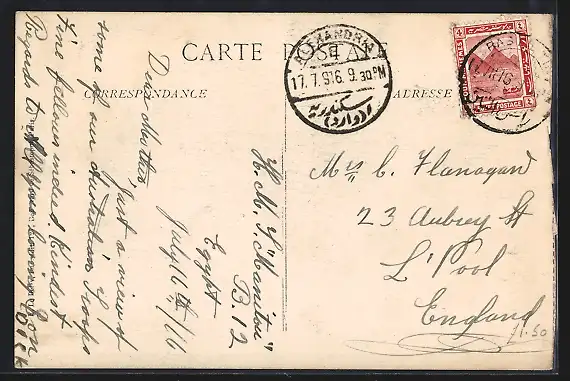 CARTE POSTALE
CORRESPONDANCE
ADRESSE
ALEXANDRIA
17.7.916 9.30 PM
اسكندرية
POSTAGE
H. M. T. "Manitou"
B. 12
Egypt
July 16th / 16
Dear Mother
Just a view of
some of our Australian Troops
Fine fellows indeed. Kindest
Regards to All your loving Son
Dick
Mrs C. Flanagan
23 Aubrey St
L'Pool
England
£1.50